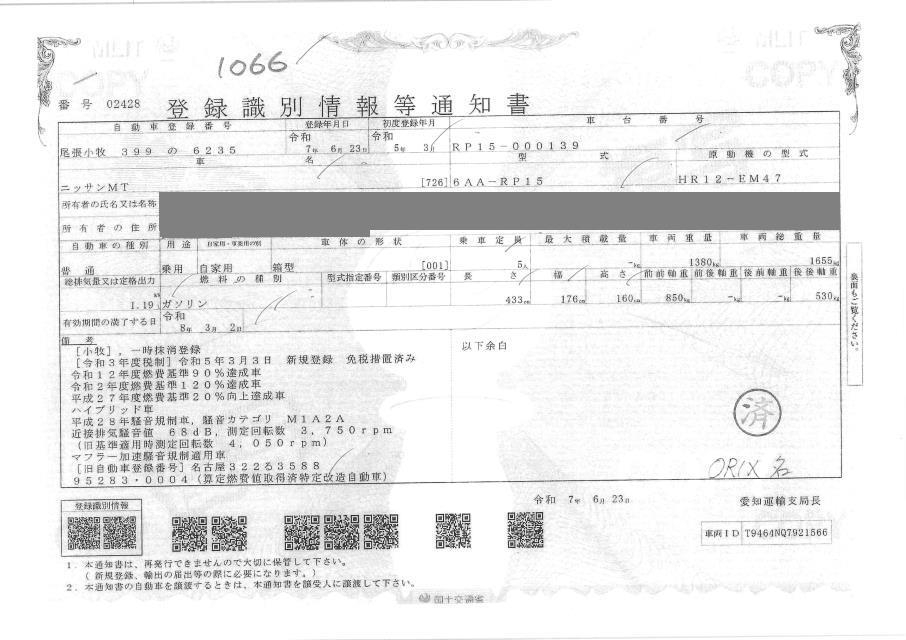 1066
番号 02428 登録識別情報等通知書
自動車登録番号 登録年月日 初度登録年月 車台番号
尾張小牧 399 の 6235 令和 7年 6月 23日 令和 5年 3月 RP15-000139
車名 型式 原動機の型式
ニッサンMT [726] 6AA-RP15 HR12-EM47
所有者の氏名又は名称
所有者の住所
自動車の種別 用途 自家用・事業用の別 車体の形状 乗車定員 最大積載量 車両重量 車両総重量
普通 乗用 自家用 箱型 [001] 5人 -kg 1380kg 1655kg
総排気量又は定格出力 燃料の種別 型式指定番号 類別区分番号 長さ 幅 高さ 前前軸重 前後軸重 後前軸重 後後軸重
1.19 ガソリン 433cm 176cm 160cm 850kg -kg -kg 530kg
有効期間の満了する日 令和 8年 3月 2日
裏面もご覧ください。
備考
[小牧],一時抹消登録
[令和3年度税制]令和5年3月3日 新規登録 免税措置済み
令和12年度燃費基準90%達成車
令和2年度燃費基準120%達成車
平成27年度燃費基準20%向上達成車
ハイブリッド車
平成28年騒音規制車,騒音カテゴリ M1A2A
近接排気騒音値 68dB,測定回転数 3,750rpm
(旧基準適用時測定回転数 4,050rpm)
マフラー加速騒音規制適用車
[旧自動車登録番号]名古屋322る3588
95283・0004(算定燃費値取得済特定改造自動車)
以下余白
済
ORIX 名
令和 7年 6月 23日 愛知運輸支局長
登録識別情報
車両ID T9464NQ7921566
1.本通知書は、再発行できませんので大切に保管して下さい。
(新規登録、輸出の届出等の際に必要になります。)
2.本通知書の自動車を譲渡するときは、本通知書を譲受人に譲渡して下さい。
国土交通省